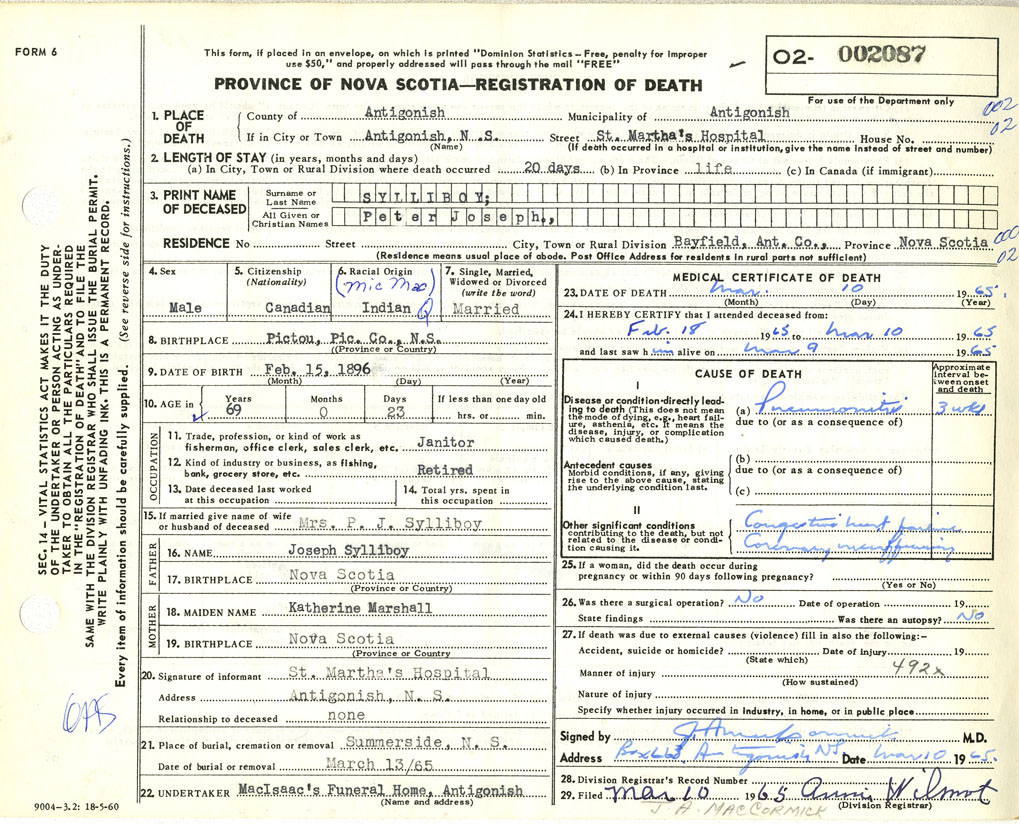 FORM 6
This form, if placed in an envelope, on which is printed "Dominion Statistics – Free, penalty for improper
use $50," and properly addressed will pass through the mail "FREE"
PROVINCE OF NOVA SCOTIA—REGISTRATION OF DEATH
O2- 002087
For use of the Department only
002
02
SEC. 14 – VITAL STATISTICS ACT MAKES IT THE DUTY
OF THE UNDERTAKER OR PERSON ACTING AS UNDER-
TAKER TO OBTAIN ALL THE PARTICULARS REQUIRED
IN THE "REGISTRATION OF DEATH" AND TO FILE THE
SAME WITH THE DIVISION REGISTRAR WHO SHALL ISSUE THE BURIAL PERMIT.
WRITE PLAINLY WITH UNFADING INK. THIS IS A PERMANENT RECORD.
Every item of information should be carefully supplied. (See reverse side for instructions.)
1. PLACE OF DEATH
County of Antigonish Municipality of Antigonish
If in City or Town Antigonish, N. S. Street St. Martha's Hospital House No.
(Name) (If death occurred in a hospital or institution, give the name instead of street and number)
2. LENGTH OF STAY (in years, months and days)
(a) In City, Town or Rural Division where death occurred 20 days (b) In Province life (c) In Canada (if immigrant)
3. PRINT NAME OF DECEASED
Surname or Last Name SYLLIBOY;
All Given or Christian Names Peter Joseph.,
RESIDENCE No Street City, Town or Rural Division Bayfield, Ant. Co., Province Nova Scotia
000
02
(Residence means usual place of abode. Post Office Address for residents in rural parts not sufficient)
4. Sex
Male
5. Citizenship
(Nationality)
Canadian
6. Racial Origin
(Mic Mac)
Indian
7. Single, Married,
Widowed or Divorced
(write the word)
Married
8. BIRTHPLACE Pictou, Pic. Co., N.S.
(Province or Country)
9. DATE OF BIRTH Feb. 15, 1896
(Month) (Day) (Year)
10. AGE in
Years Months Days If less than one day old
69 0 23 hrs. or min.
OCCUPATION
11. Trade, profession, or kind of work as
fisherman, office clerk, sales clerk, etc. Janitor
12. Kind of industry or business, as fishing,
bank, grocery store, etc. Retired
13. Date deceased last worked
at this occupation
14. Total yrs. spent in
this occupation
15. If married give name of wife
or husband of deceased Mrs. P. J. Sylliboy
FATHER
16. NAME Joseph Sylliboy
17. BIRTHPLACE Nova Scotia
(Province or Country)
MOTHER
18. MAIDEN NAME Katherine Marshall
19. BIRTHPLACE Nova Scotia
(Province or Country
20. Signature of informant St. Martha's Hospital
Address Antigonish, N. S.
Relationship to deceased none
21. Place of burial, cremation or removal Summerside, N. S.
Date of burial or removal March 13/65
22. UNDERTAKER MacIsaac's Funeral Home, Antigonish
(Name and address)
9004-3.2: 18-5-60
MEDICAL CERTIFICATE OF DEATH
23. DATE OF DEATH Mar. 10 1965.
(Month) (Day) (Year)
24. I HEREBY CERTIFY that I attended deceased from:
Feb. 18 1965 to Mar 10 1965
and last saw him alive on Mar 9 1965
CAUSE OF DEATH
Approximate
interval be-
tween onset
and death
I
Disease or condition directly lead-
ing to death (This does not mean
the mode of dying, e.g., heart fail-
ure, asthenia, etc. It means the
disease, injury, or complication
which caused death.)
(a) Pneumonitis 3 wks
due to (or as a consequence of)
Antecedent causes
Morbid conditions, if any, giving
rise to the above cause, stating
the underlying condition last.
(b)
due to (or as a consequence of)
(c)
II
Other significant conditions
contributing to the death, but not
related to the disease or condi-
tion causing it.
Congestive heart failure
Coronary insufficiency
25. If a woman, did the death occur during
pregnancy or within 90 days following pregnancy?
(Yes or No)
26. Was there a surgical operation? No Date of operation 19
State findings Was there an autopsy? No
27. If death was due to external causes (violence) fill in also the following:–
Accident, suicide or homicide? Date of injury 19
(State which)
492x
Manner of injury
(How sustained)
Nature of injury
Specify whether injury occurred in industry, in home, or in public place
Signed by M.D.
Address Box 663 Antigonish NS Date Mar 10 1965.
28. Division Registrar's Record Number
29. Filed Mar 10 1965 Anni Wilmot
(Division Registrar)
J. A. MACCORMICK